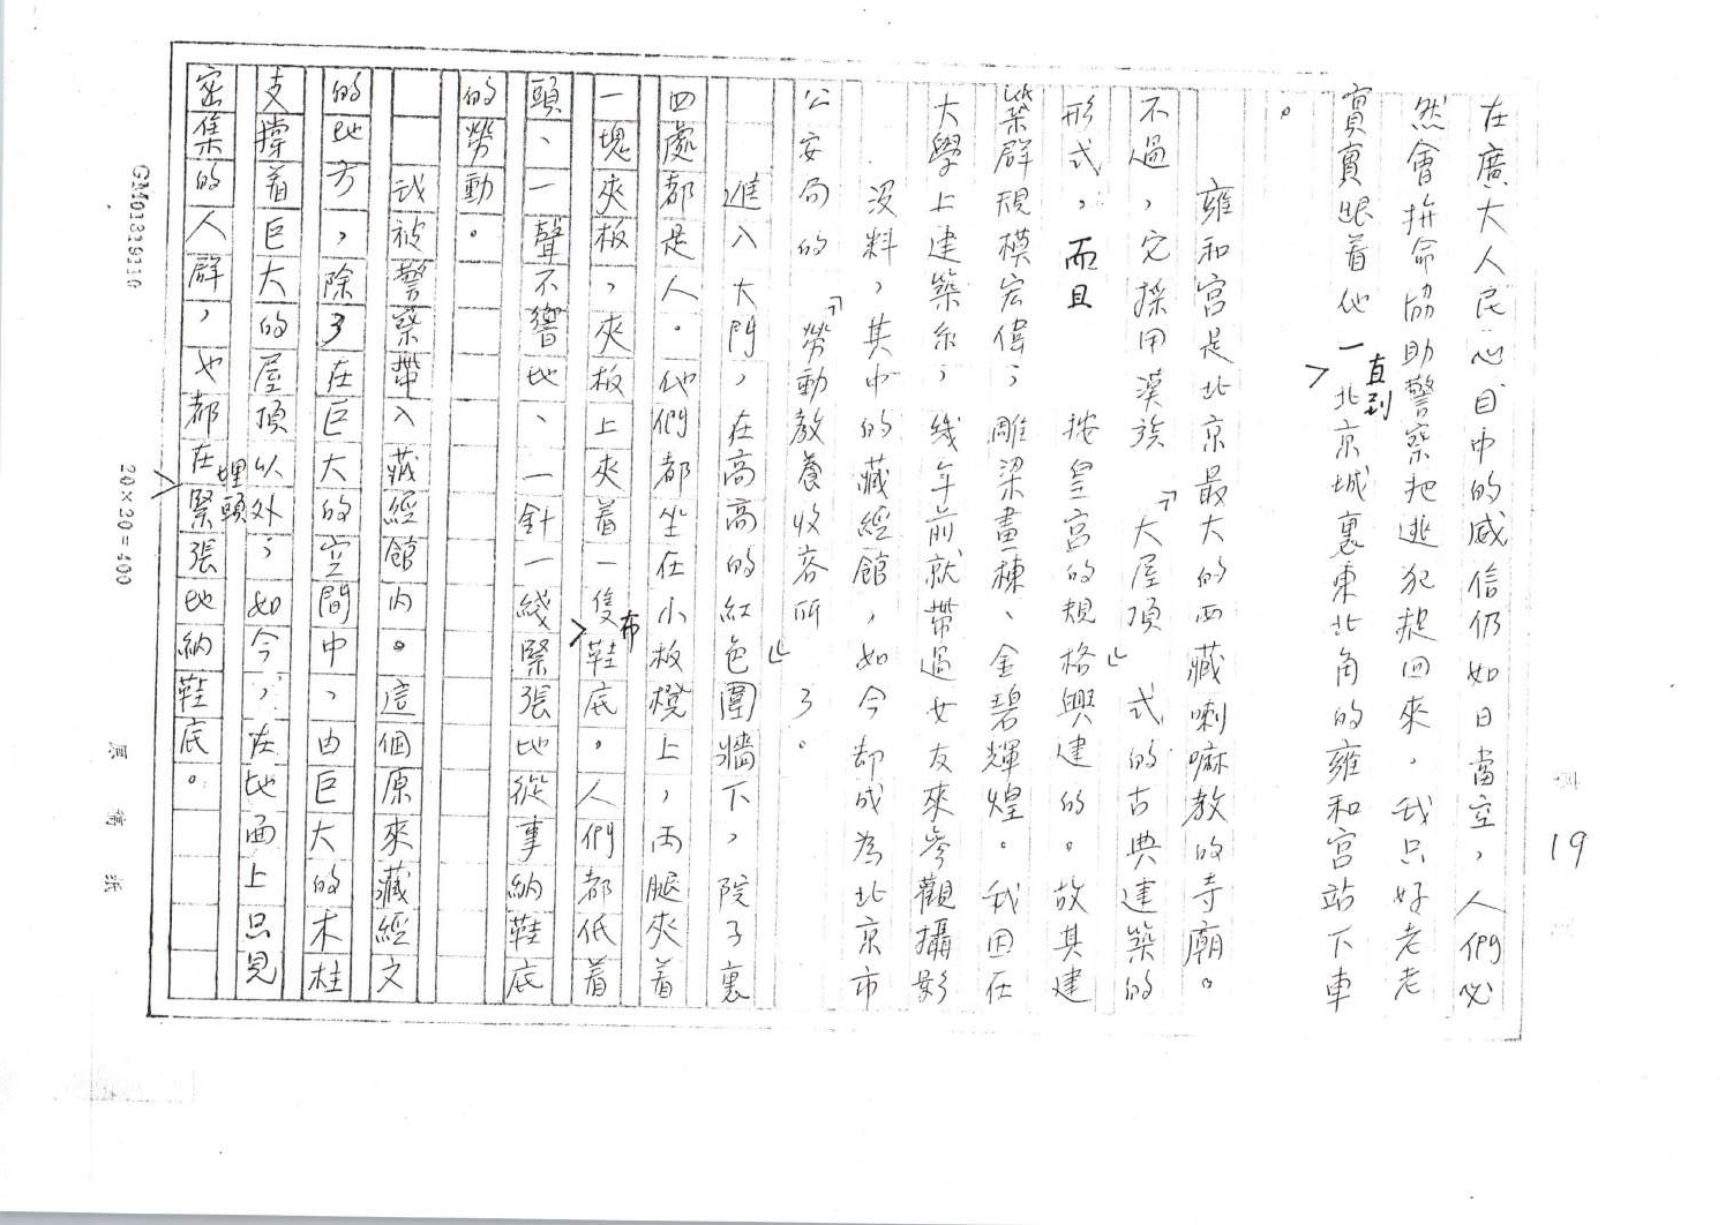 19
在廣大人民心目中的威信仍如日當空，人們必
然會拚命協助警察把逃犯捉回來，我只好老老
實實跟着他一直到北京城裏東北角的雍和宮站下車
。
雍和宮是北京最大的西藏喇嘛教的寺廟。
不過，它採用漢族「大屋頂」式的古典建築的
形式，而且按皇宮的規格興建的。故其建
築群規模宏偉；雕梁畫棟、金碧輝煌。我因在
大學上建築系，幾年前就帶過女友來參觀攝影
沒料，其中的藏經館，如今却成為北京市
公安局的「勞動教養收容所」了。
進入大門，在高高的紅色圍牆下，院子裏
四處都是人。他們都坐在小板櫈上，兩腿夾着
一塊夾板，夾板上夾着一隻布鞋底。人們都低着
頭、一聲不響地、一針一綫緊張地從事納鞋底
的勞動。
我被警察帶入藏經館內。這個原來藏經文
的地方，除了在巨大的空間中，由巨大的木柱
支撐着巨大的屋頂以外；如今，在地面上只見
密集的人群，也都在埋頭緊張地納鞋底。
GM0319110
20×20=400
原稿紙